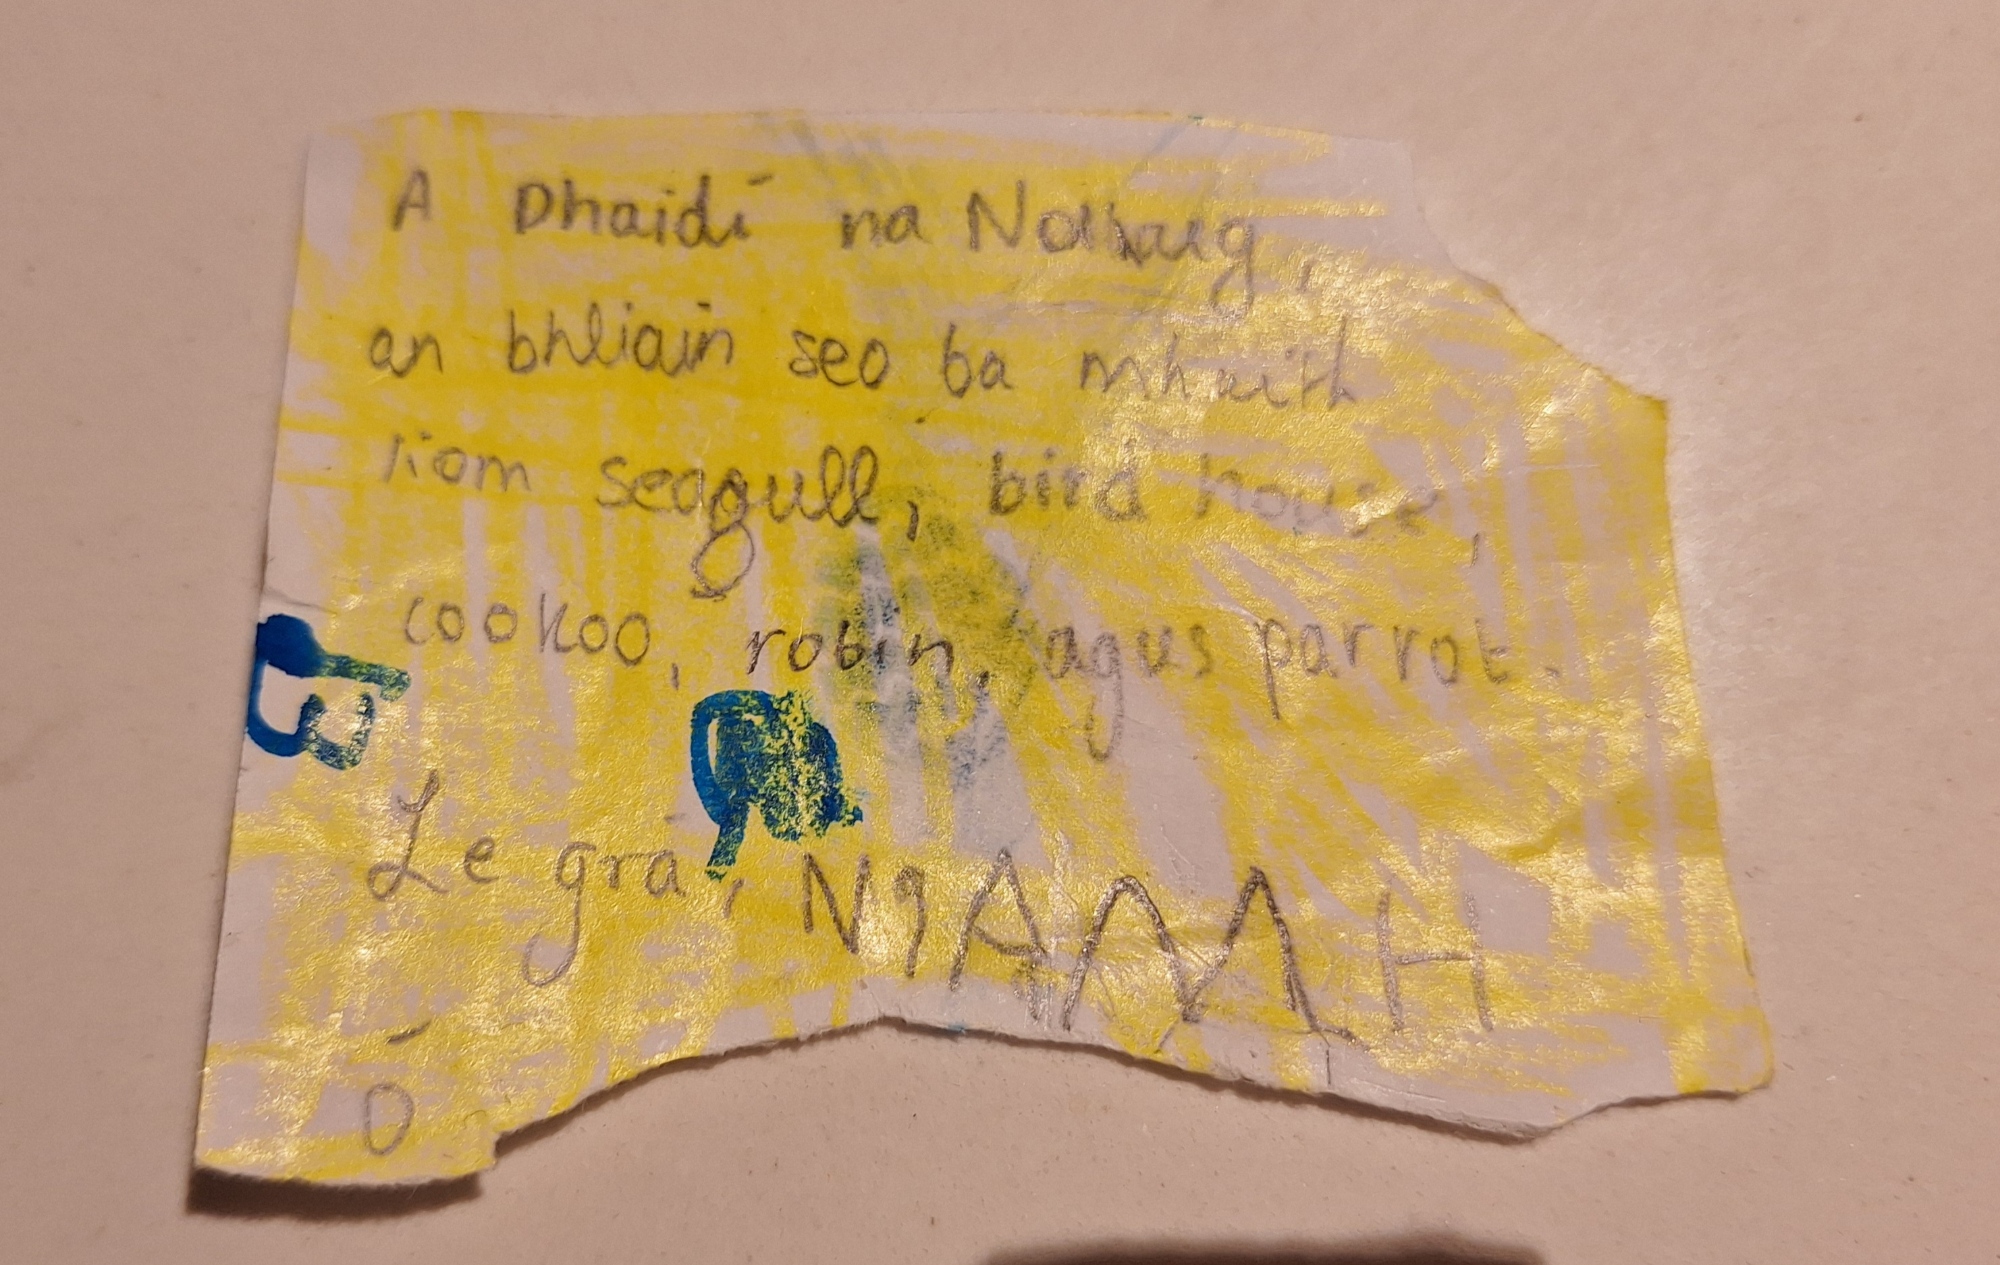 A Dhaidí na Nollaig,
an bhliain seo ba mhaith
liom seagull, bird house,
cookoo, robin, agus parrot.
Le grá, NIAMH
Ó